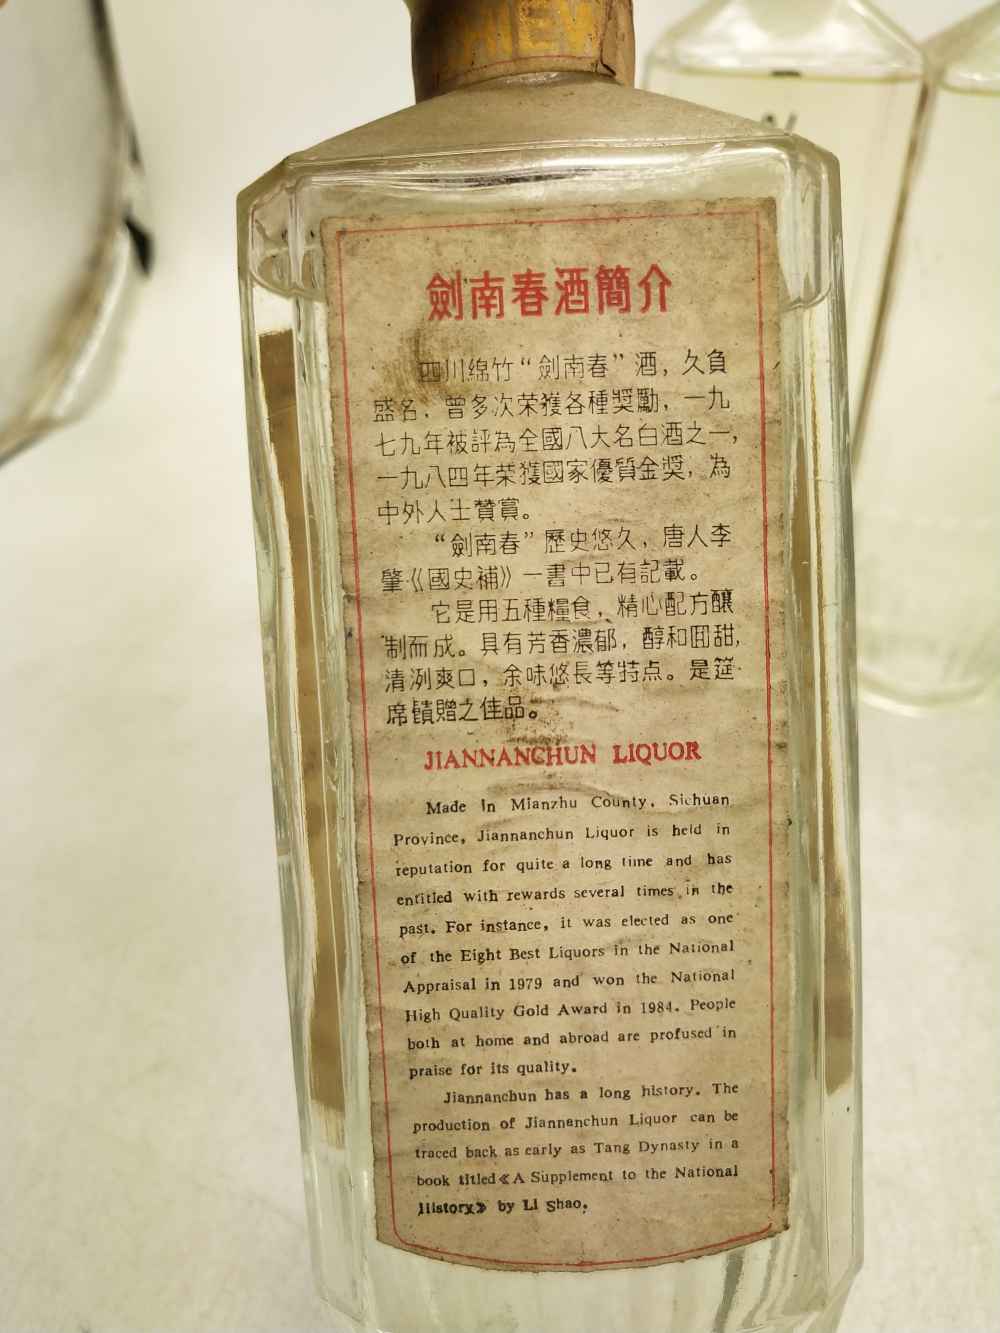 劍南春酒簡介
四川綿竹“劍南春”酒，久負
盛名、曾多次荣獲各種獎勵，一九
七九年被評為全國八大名白酒之一，
一九八四年荣獲國家優質金獎，為
中外人士贊賞。
“劍南春”歷史悠久、唐人李
肇《國史補》一書中已有記載。
它是用五種糧食，精心配方釀
制而成。具有芳香濃郁，醇和囬甜，
清洌爽口，余味悠長等特点。是筵
席饋贈之佳品。
JIANNANCHUN LIQUOR
Made in Mianzhu County, Sichuan
Province, Jiannanchun Liquor is held in
reputation for quite a long time and has
entitled with rewards several times in the
past. For instance, it was elected as one
of the Eight Best Liquors in the National
Appraisal in 1979 and won the National
High Quality Gold Award in 1984. People
both at home and abroad are profused in
praise for its quality.
Jiannanchun has a long history. The
production of Jiannanchun Liquor can be
traced back as early as Tang Dynasty in a
book titled《A Supplement to the National
History》 by Li Shao.